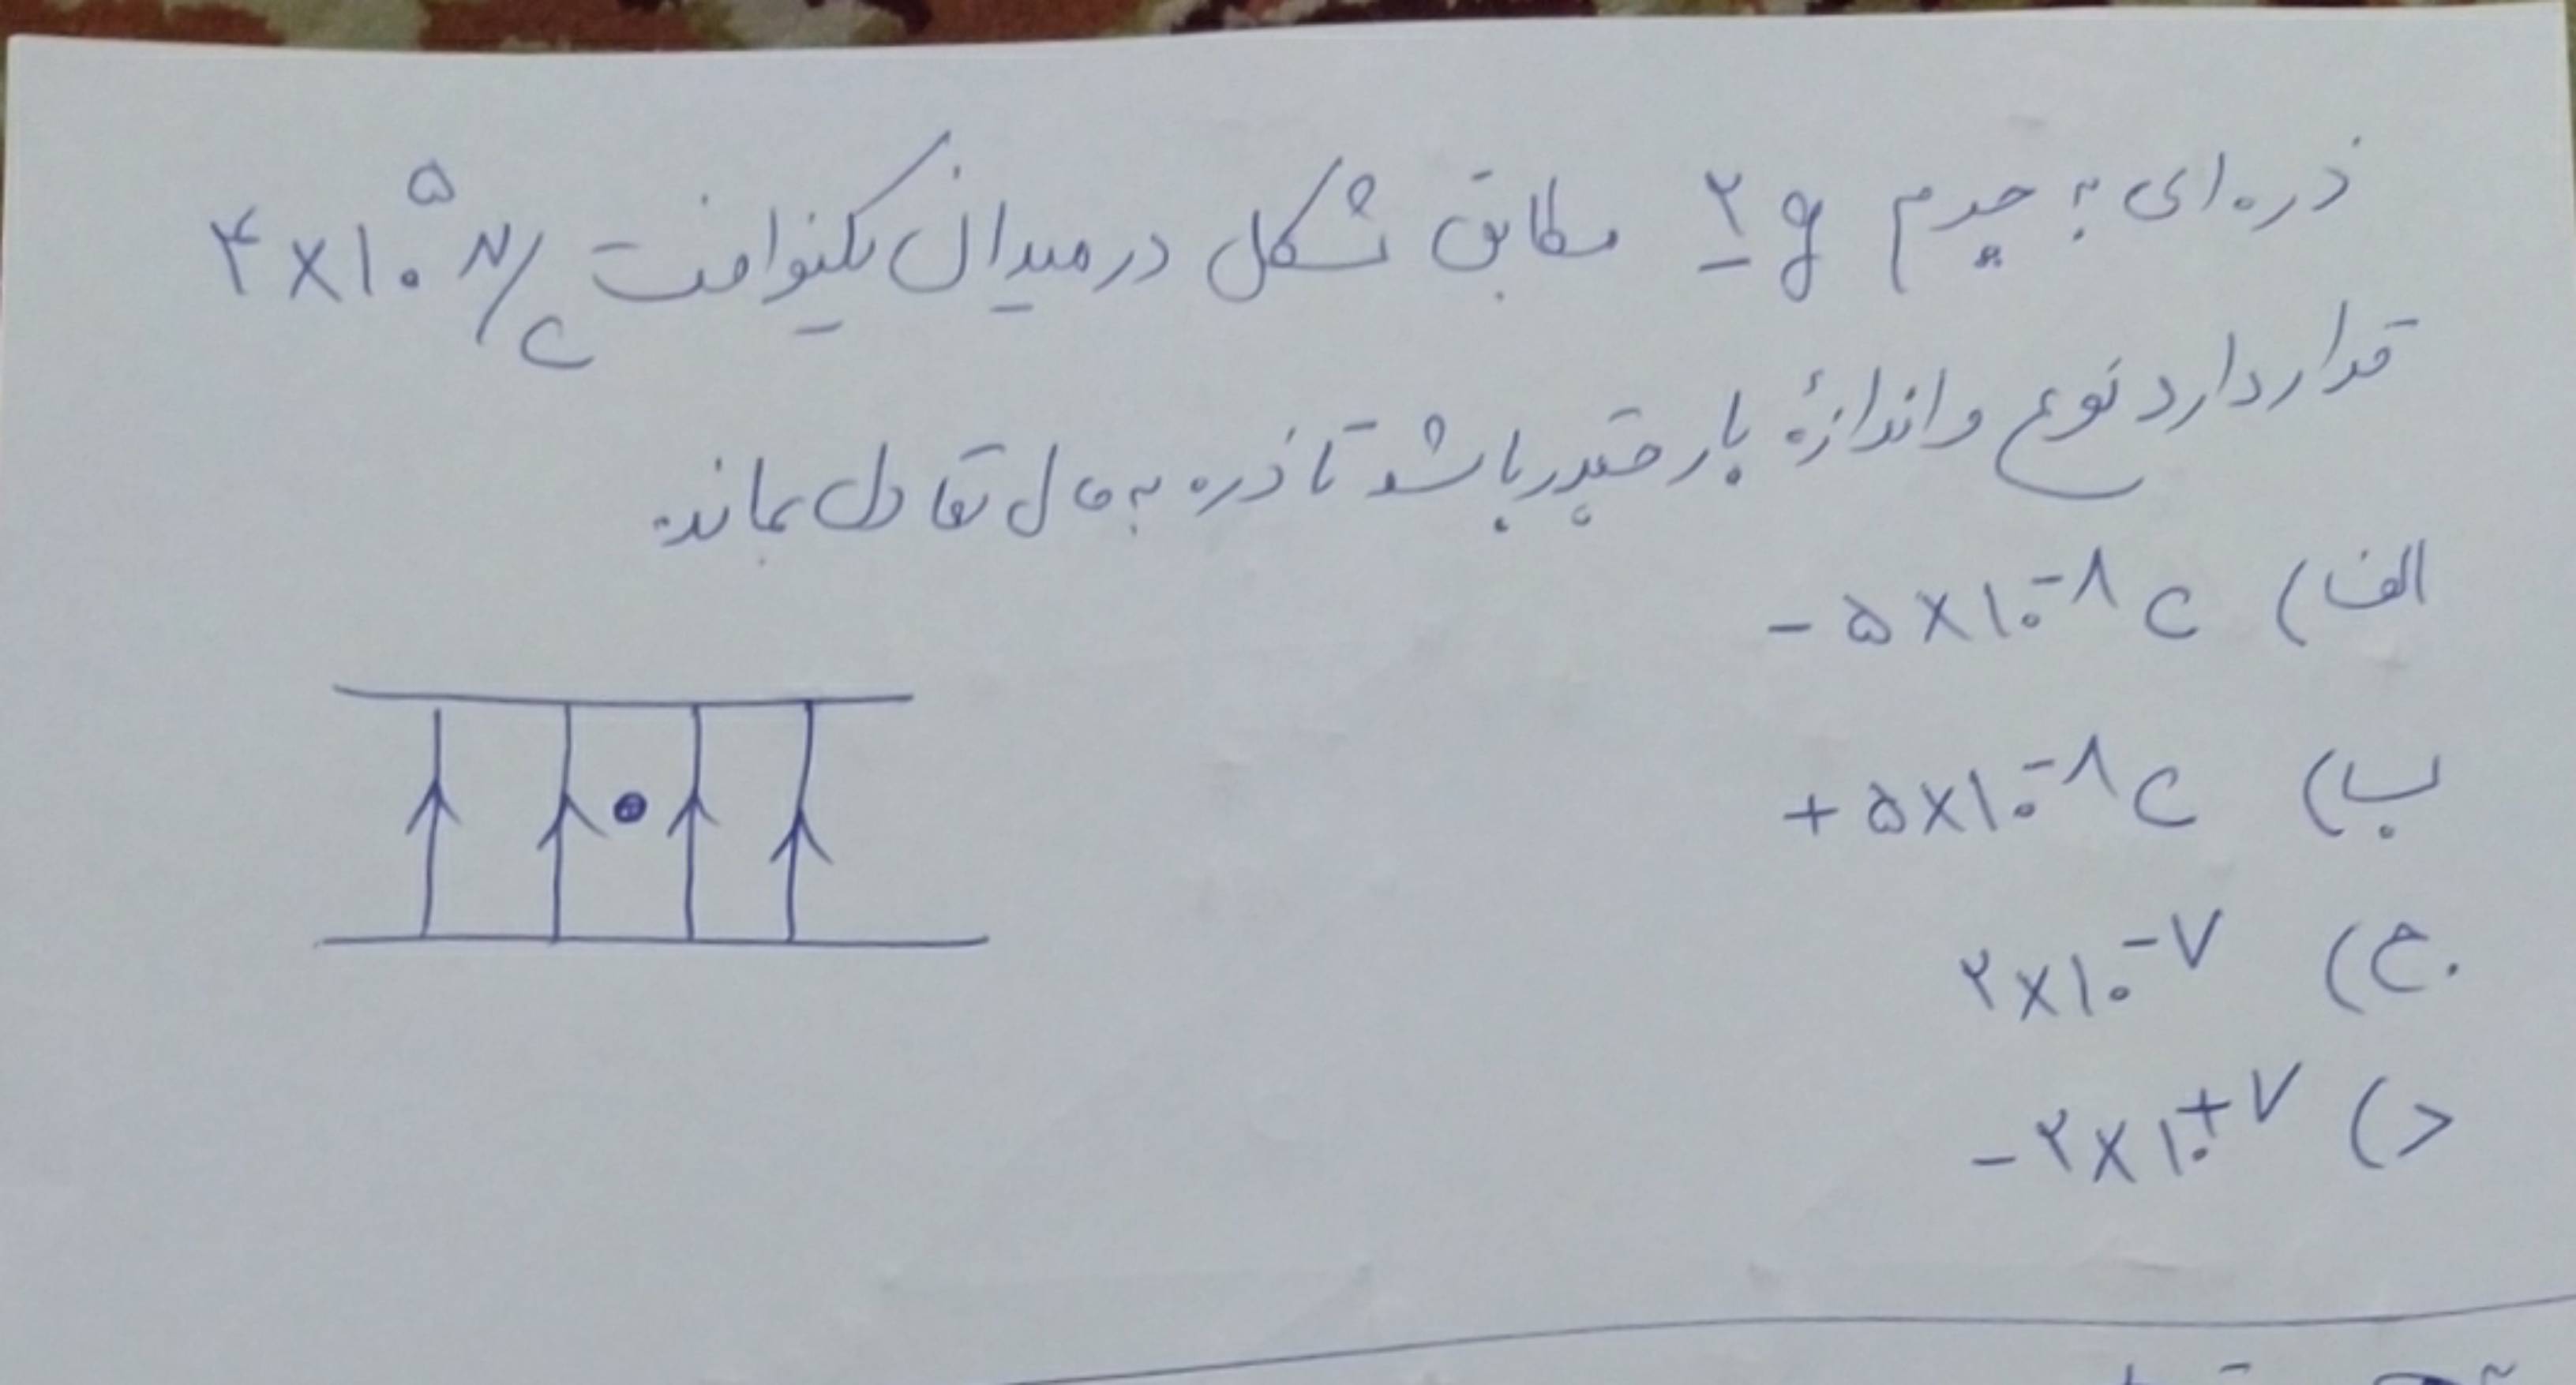 ذره ای به جرم ۲g مطابق شکل در میدان یکنواخت ۴×۱۰^۵ N/C
قرار دارد نوع و اندازهٔ بار چقدر باشد تا ذره به حال تعادل بماند.
الف) -۵×۱۰^-۸ C
ب) +۵×۱۰^-۸ C
ج) ۲×۱۰^-۷
د) -۲×۱۰^+۷